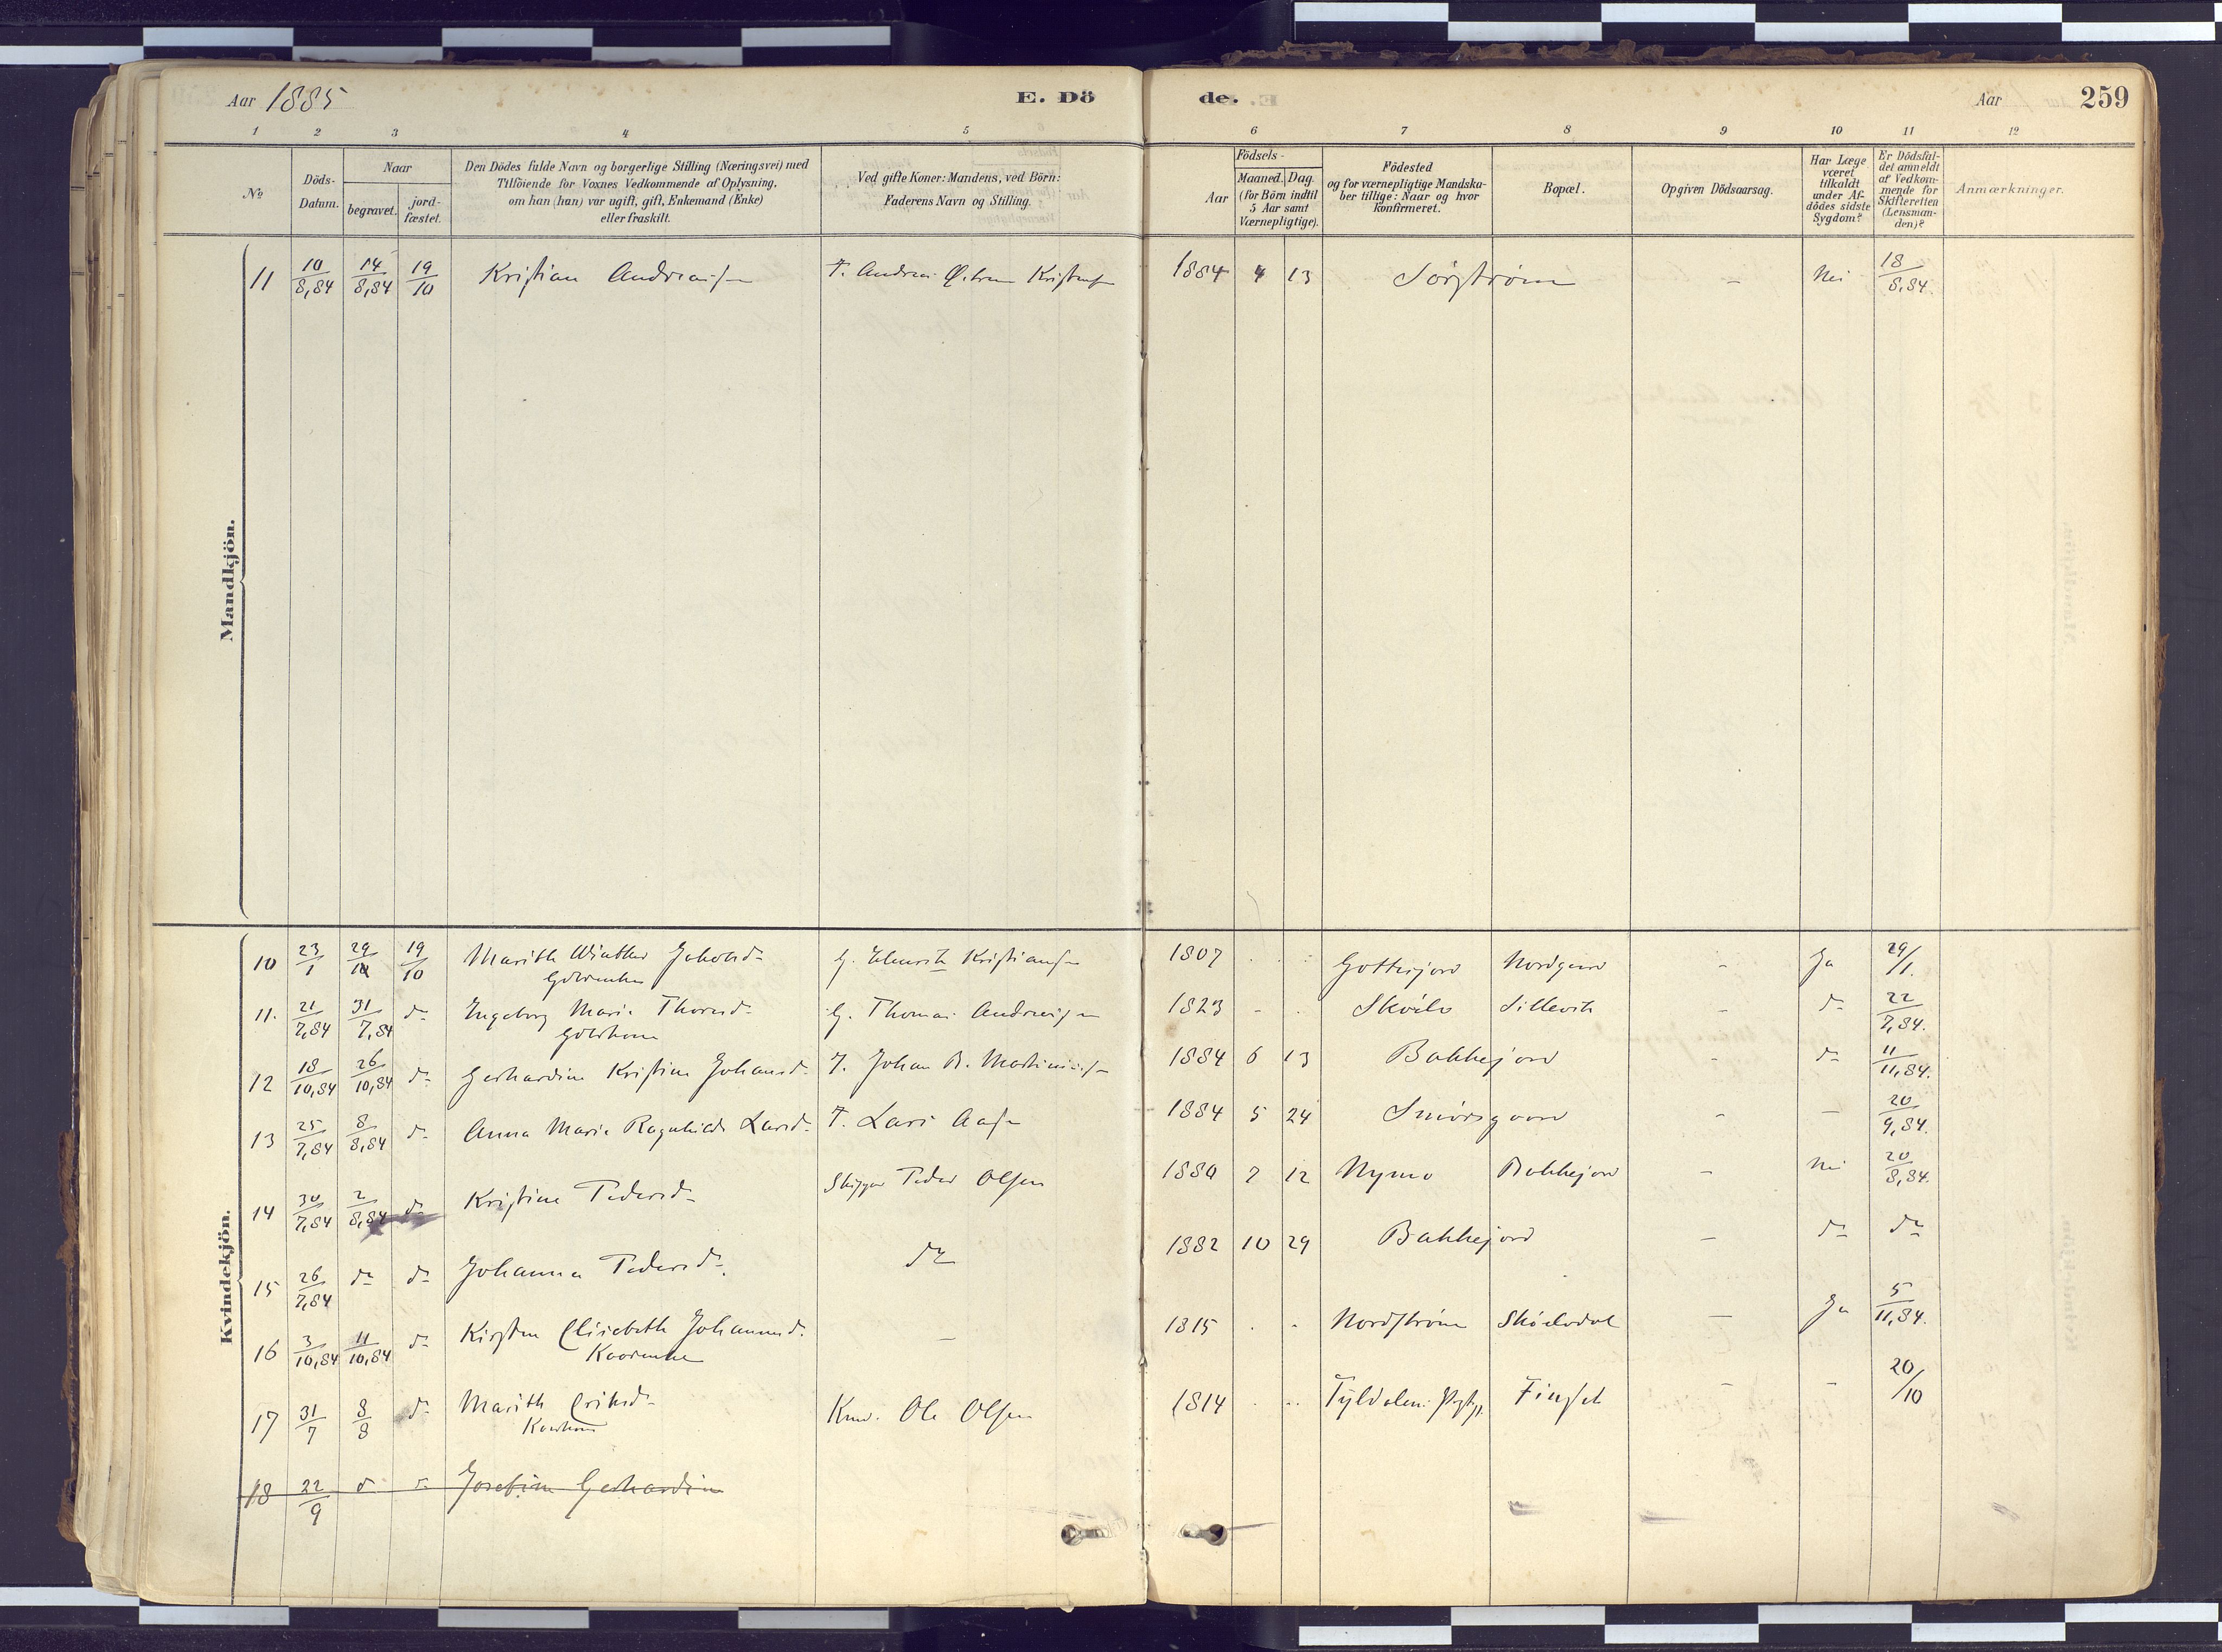 Aar 1885 E. Dö de. Aar 259
1 2 3 4 5 6 7 8 9 10 11 12
№ Döds-Datum. Naar begravet. jord-fæstet. Den Dödes fulde Navn og borgerlige Stilling (Næringsvei) med Tilföiende for Voxnes Vedkommende af Oplysning, om han (hun) var ugift, gift, Enkemand (Enke) eller fraskilt. Ved gifte Koner: Mandens, ved Börn: Faderens Navn og Stilling. Födsels- Aar Maaned. Dag. (for Börn indtil 5 Aar samt Værnepligtige). Födested og for værnepligtige Mandskaber tillige: Naar og hvor konfirmeret. Bopæl. Opgiven Dödsaarsag. Har Læge været tilkaldt under Afdödes sidste Sygdom? Er Dödsfaldet anmeldt af Vedkommende for Skifteretten (Lensmanden)? Anmærkninger.
Mandkjön.
11 10/8,84 14/8,84 19/10 Kristian F. 1884 4 13 Sörstrøm - Nei 18/8,84.
Kvindekjön.
10 23/1 29/10 19/10 Marith G. Kristiansen 1807 . . Nordgaard - Ja 29/1.
11. 21/7,84 31/7,84 do Ingeborg Marie Thoresd. G. Thomas Andreasen 1823 - . Sillevik - do 22/7,84.
12 18/10,84 26/10,84 do Gerhardine Kristine Johansd. F. Johan B. 1884 6 13 Bakkejord - do 11/11,84.
13 25/7,84 8/8,84 do Anna Marie Ragnhild Larsd. F. Lars 1884 5 24 - - 20/9,84.
14 30/7,84 2/8,84 do Kristine Pedersd. Skipper Peder Olsen 1880 7 12 Nymo Bakkejord - Nei 20/8,84.
15 26/7,84 do do Johanna Pedersd. do 1882 10 29 Bakkejord - do do
16 3/10,84 11/10,84 do Kirsten Elisabeth Johannesd. - 1815 . - Nordstrøm - Ja 5/11,84.
17 31/7 8/8 do Marith Eriksd. Ole Olsen 1814 . .. Tyldalen Finset - - 20/10
18 22/9 do do Josefine Gerhardine